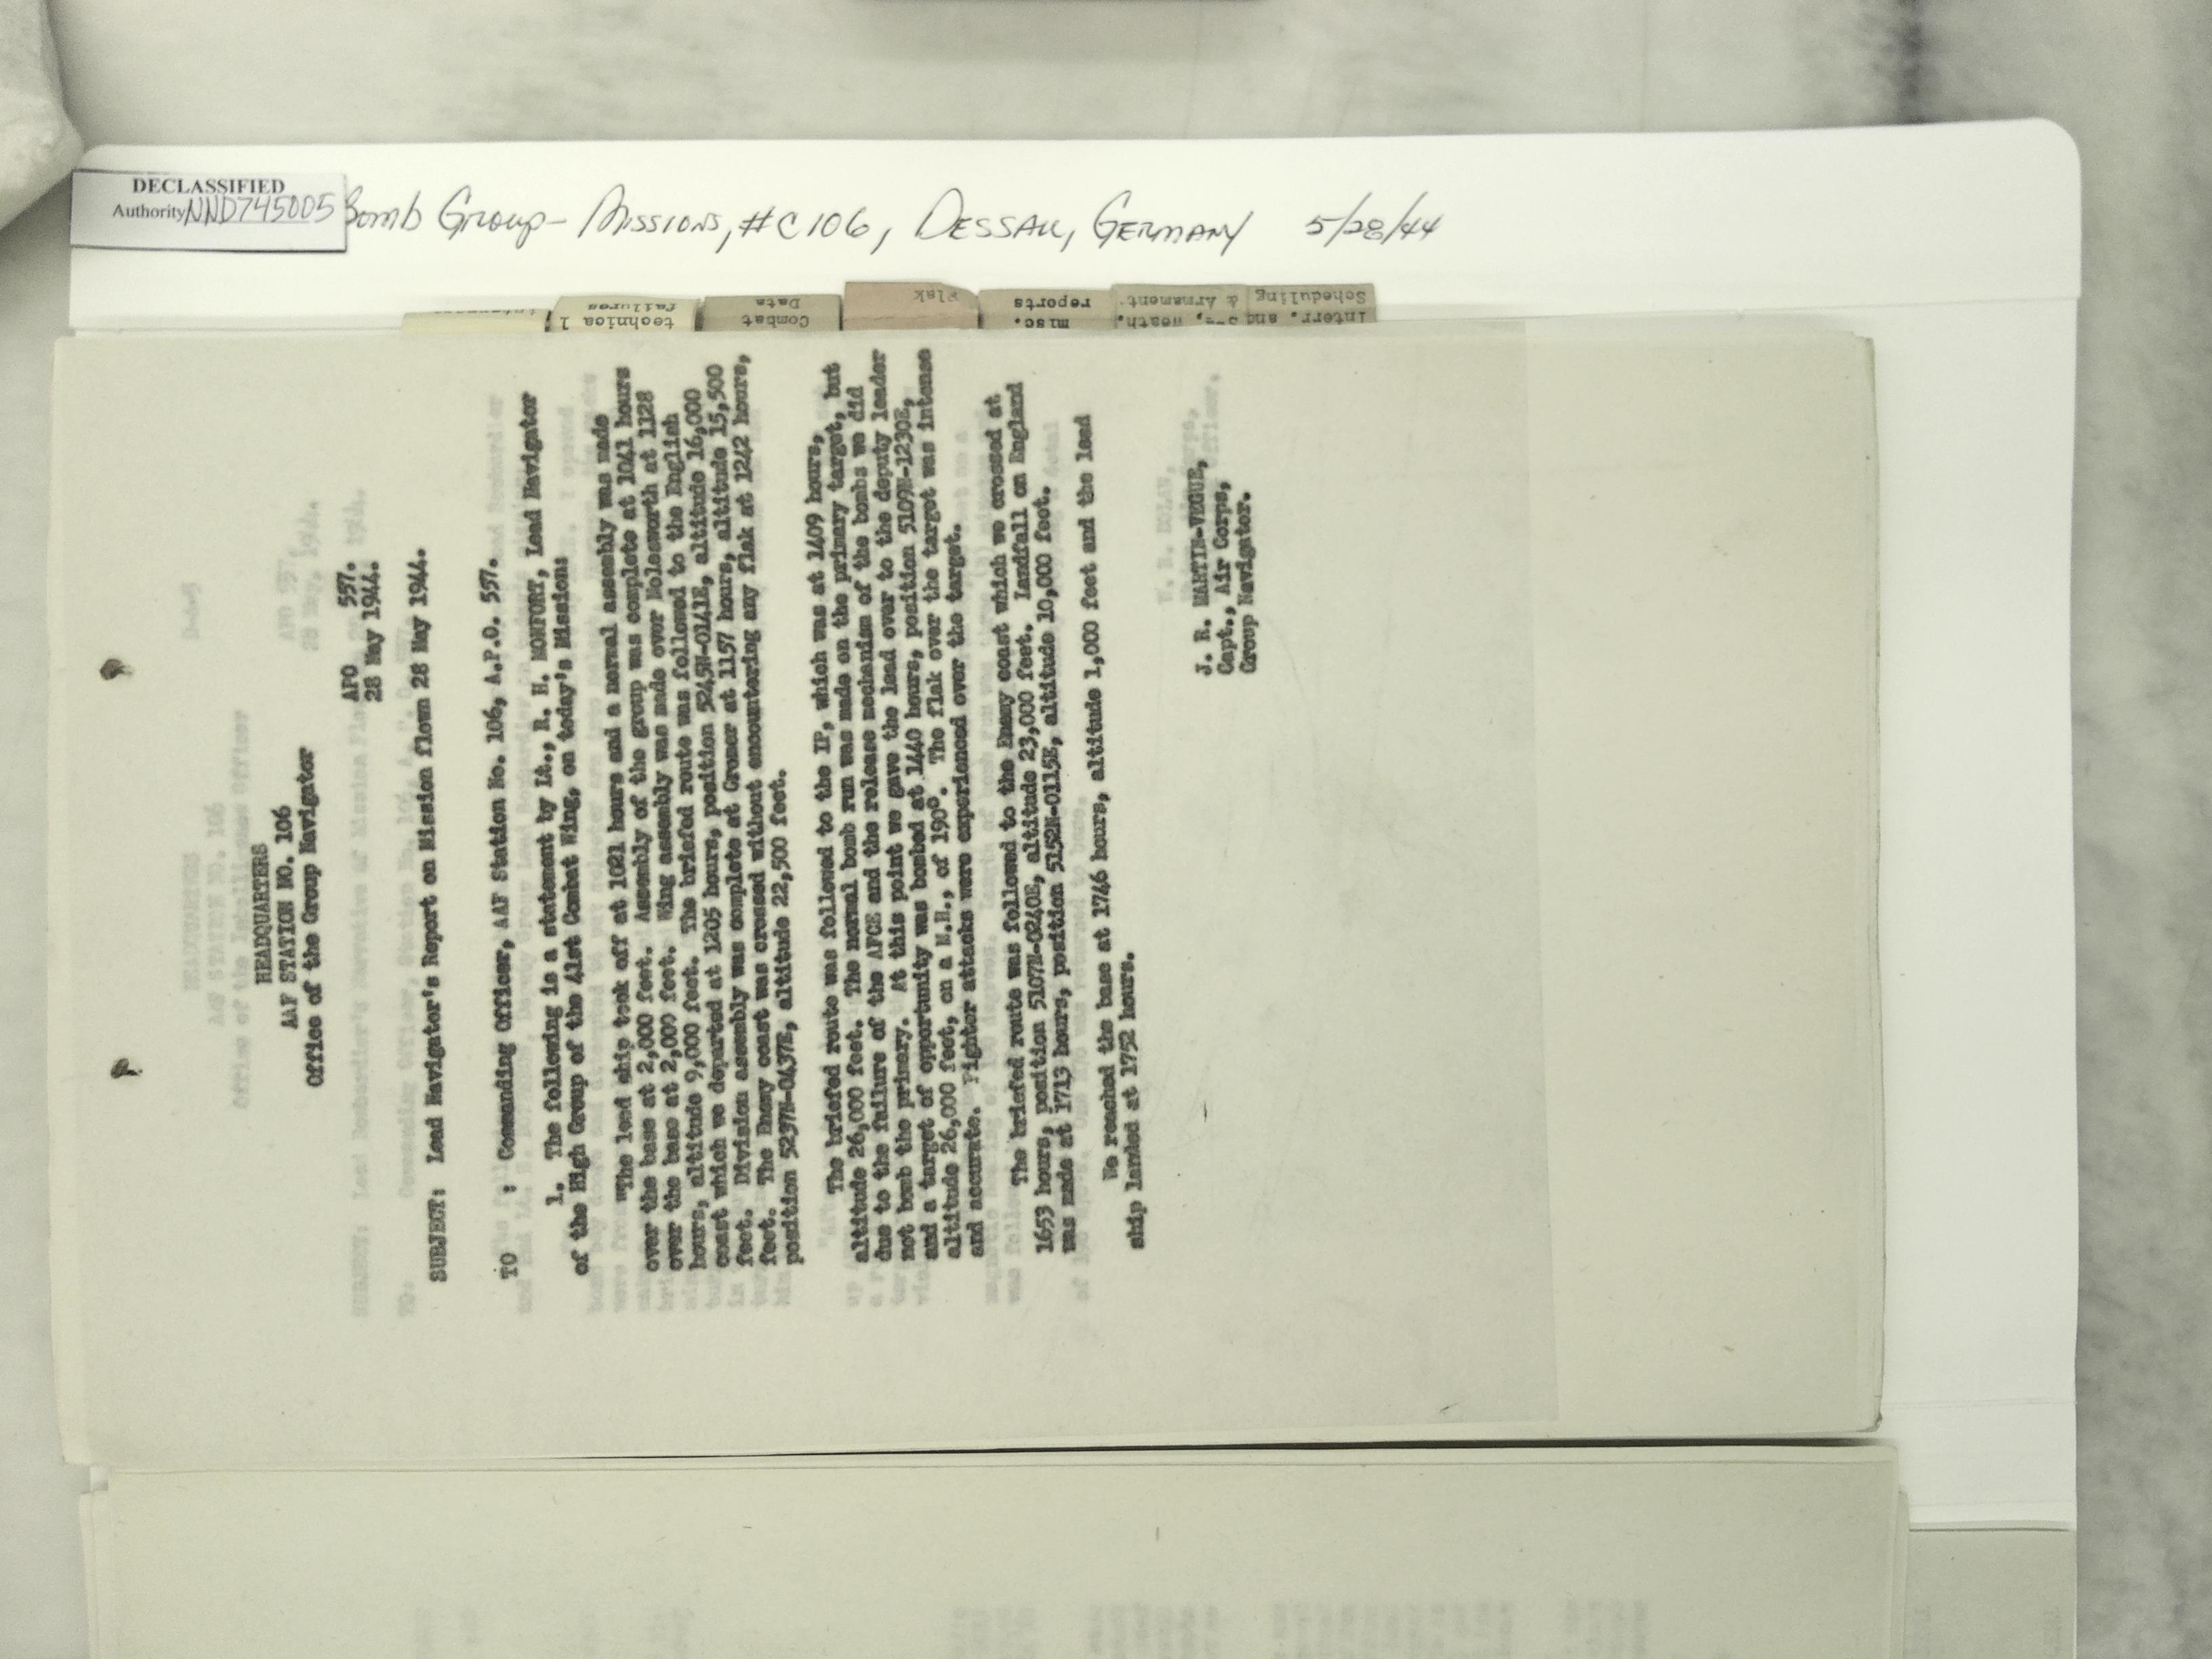 DECLASSIFIED
Authority NND745005
Bomb Group - Missions, #C106, Dessau, Germany 5/28/44
technical failures
Combat Data
Flak
misc. reports
Weath.
& Armament.
Interr. and Scheduling
HEADQUARTERS
AAF STATION NO. 106
Office of the Group Navigator
APO 557.
28 May 1944.
SUBJECT: Lead Navigator's Report on Mission flown 28 May 1944.
TO : Commanding Officer, AAF Station No. 106, A.P.O. 557.
1. The following is a statement by Lt., R. H. MONFORT, Lead Navigator
of the High Group of the 41st Combat Wing, on today's Mission:
"The lead ship took off at 1021 hours and a normal assembly was made
over the base at 2,000 feet. Assembly of the group was complete at 1041 hours
over the base at 2,000 feet. Wing assembly was made over Molesworth at 1128
hours, altitude 9,000 feet. The briefed route was followed to the English
coast which we departed at 1205 hours, position 5245N-0141E, altitude 16,000
feet. Division assembly was complete at Cromer at 1157 hours, altitude 15,500
feet. The Enemy coast was crossed without encountering any flak at 1242 hours,
position 5237N-0437E, altitude 22,500 feet.
The briefed route was followed to the IP, which was at 1409 hours,
altitude 26,000 feet. The normal bomb run was made on the primary target, but
due to the failure of the AFCE and the release mechanism of the bombs we did
not bomb the primary. At this point we gave the lead over to the deputy leader
and a target of opportunity was bombed at 1440 hours, position 5109N-1230E,
altitude 26,000 feet, on a M.H., of 190°. The flak over the target was intense
and accurate. Fighter attacks were experienced over the target.
The briefed route was followed to the Enemy coast which we crossed at
1653 hours, position 5107N-0240E, altitude 23,000 feet. Landfall on England
was made at 1713 hours, position 5152N-0115E, altitude 10,000 feet.
We reached the base at 1746 hours, altitude 1,000 feet and the lead
ship landed at 1752 hours.
J. R. MARTIN-VEGUE,
Capt., Air Corps,
Group Navigator.